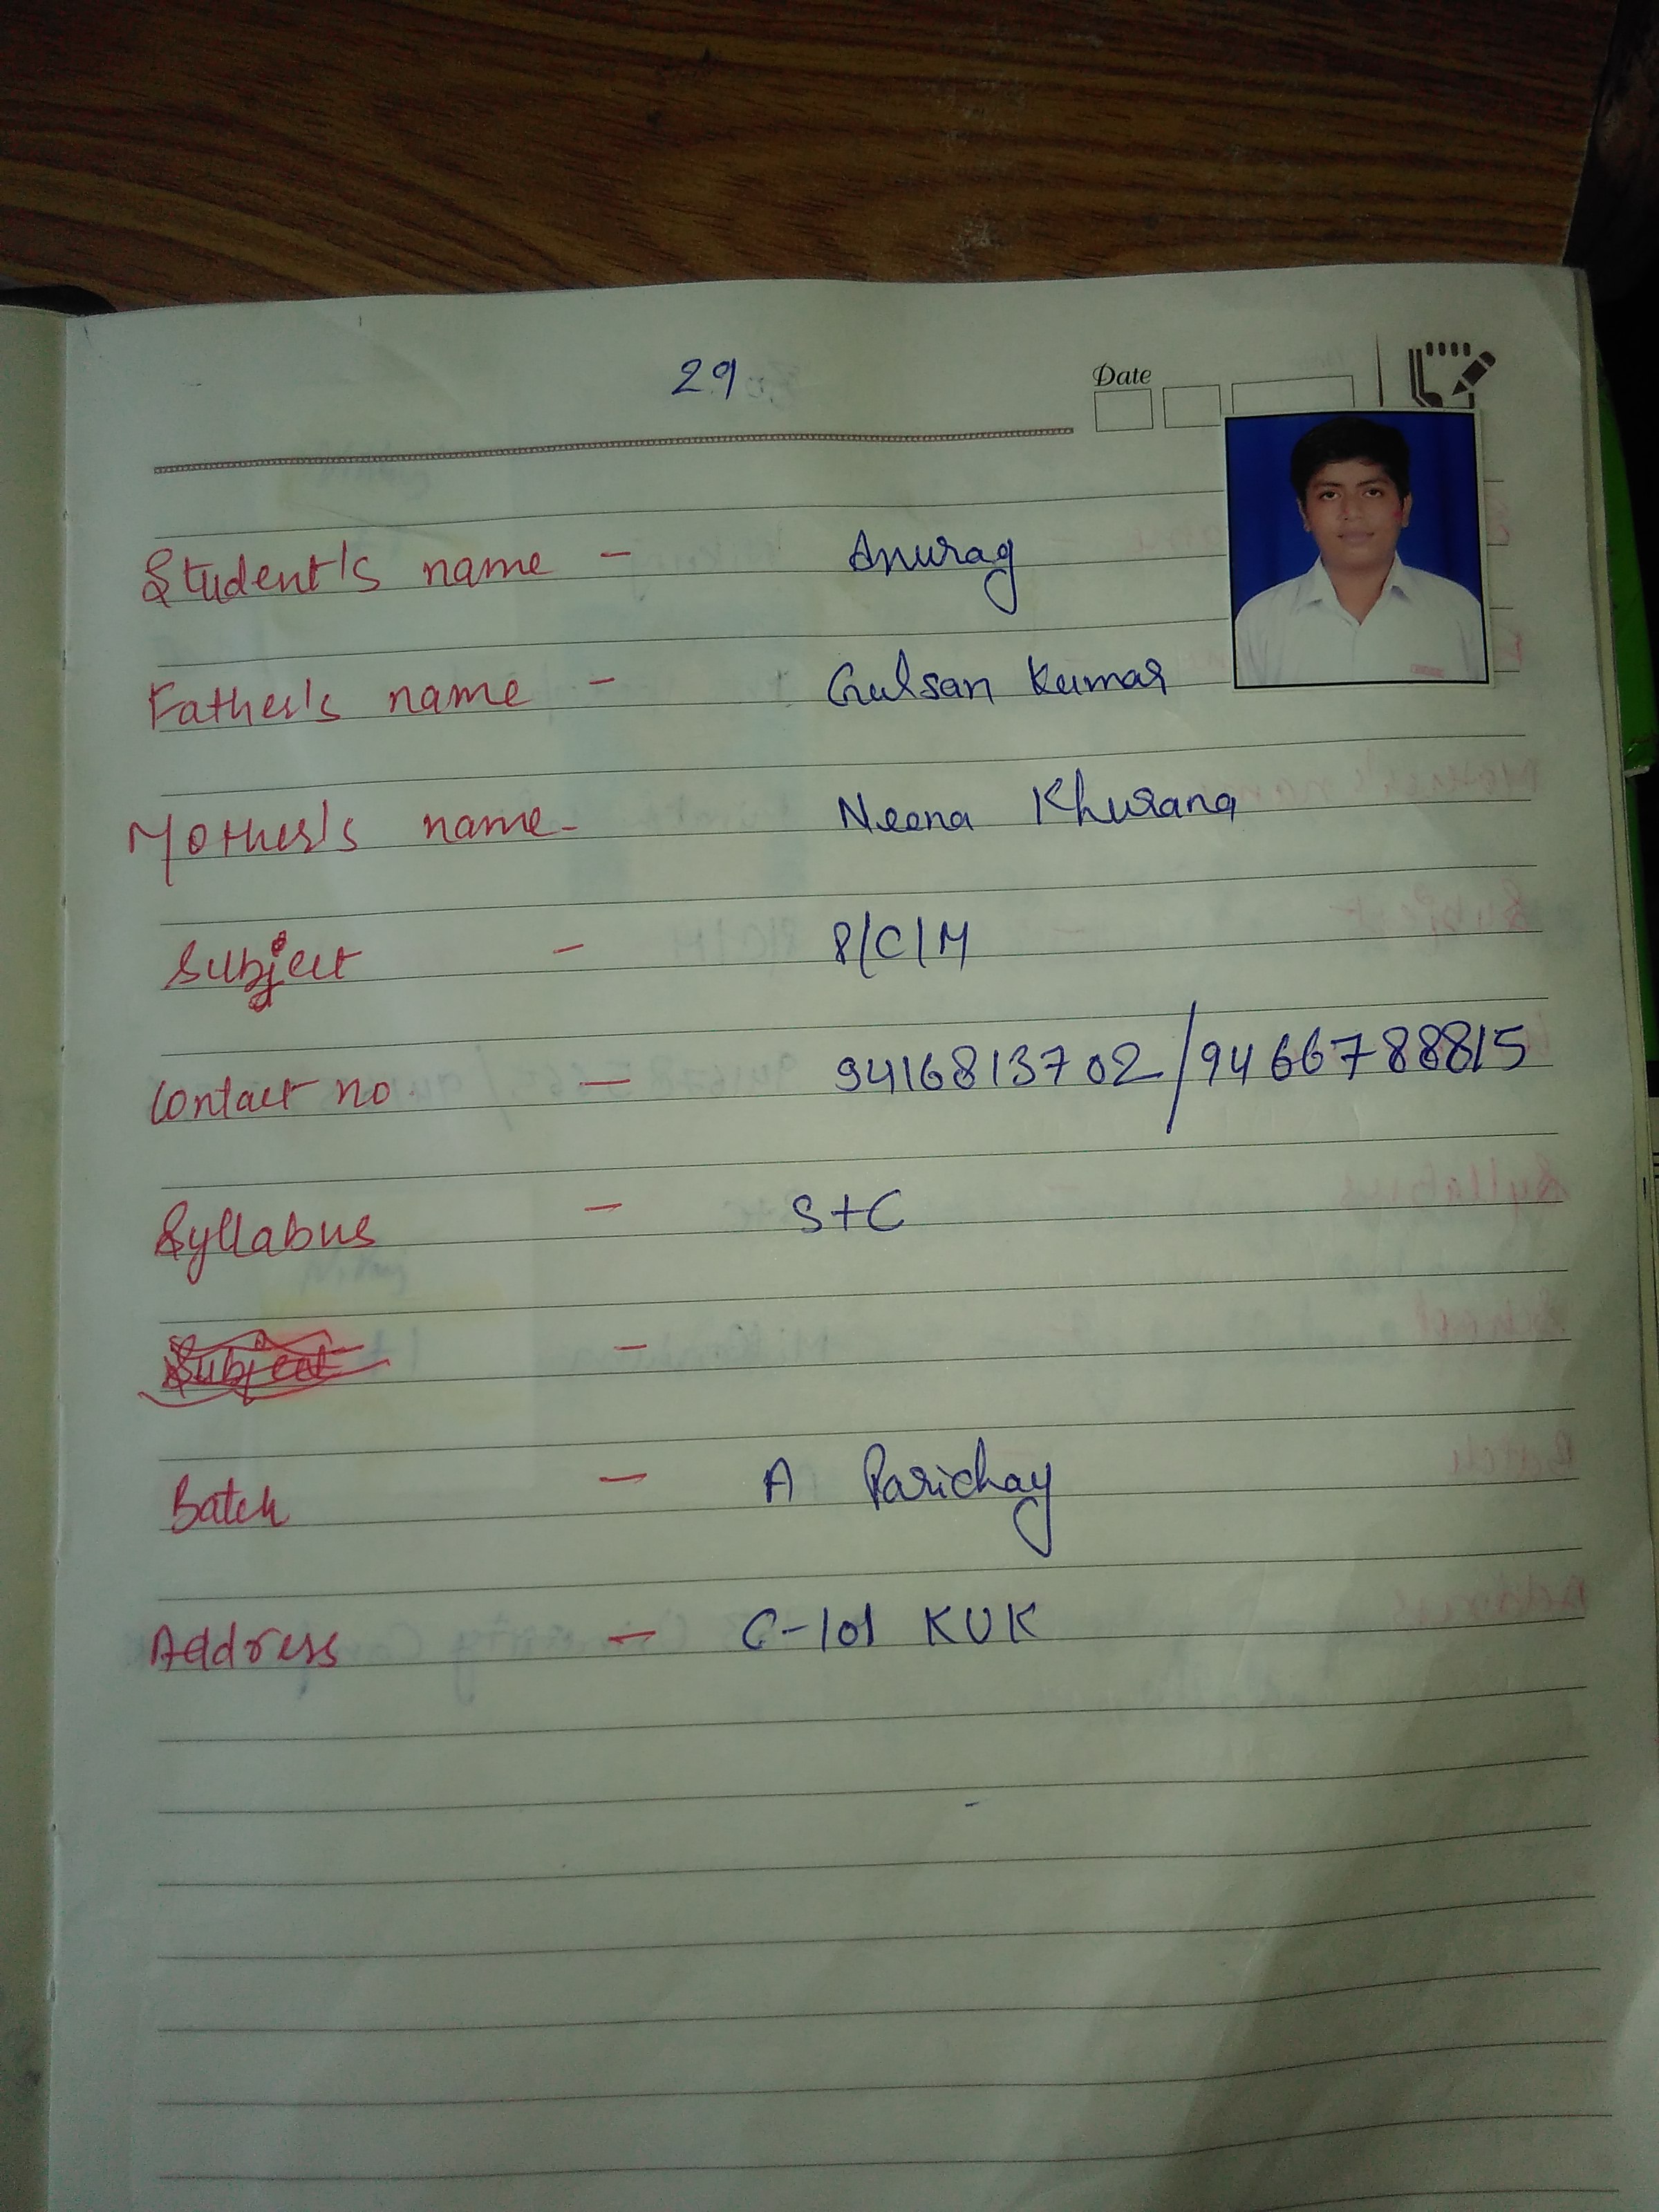 29
Date
Student's name - Anurag
Father's name - Gulsan Kumar
Mother's name - Neena Khurana
Subject - P/C/M
Contact no. - 9416813702/9466788815
Syllabus - S+C
Subject -
Batch - A Parichay
Address - C-101 KUK